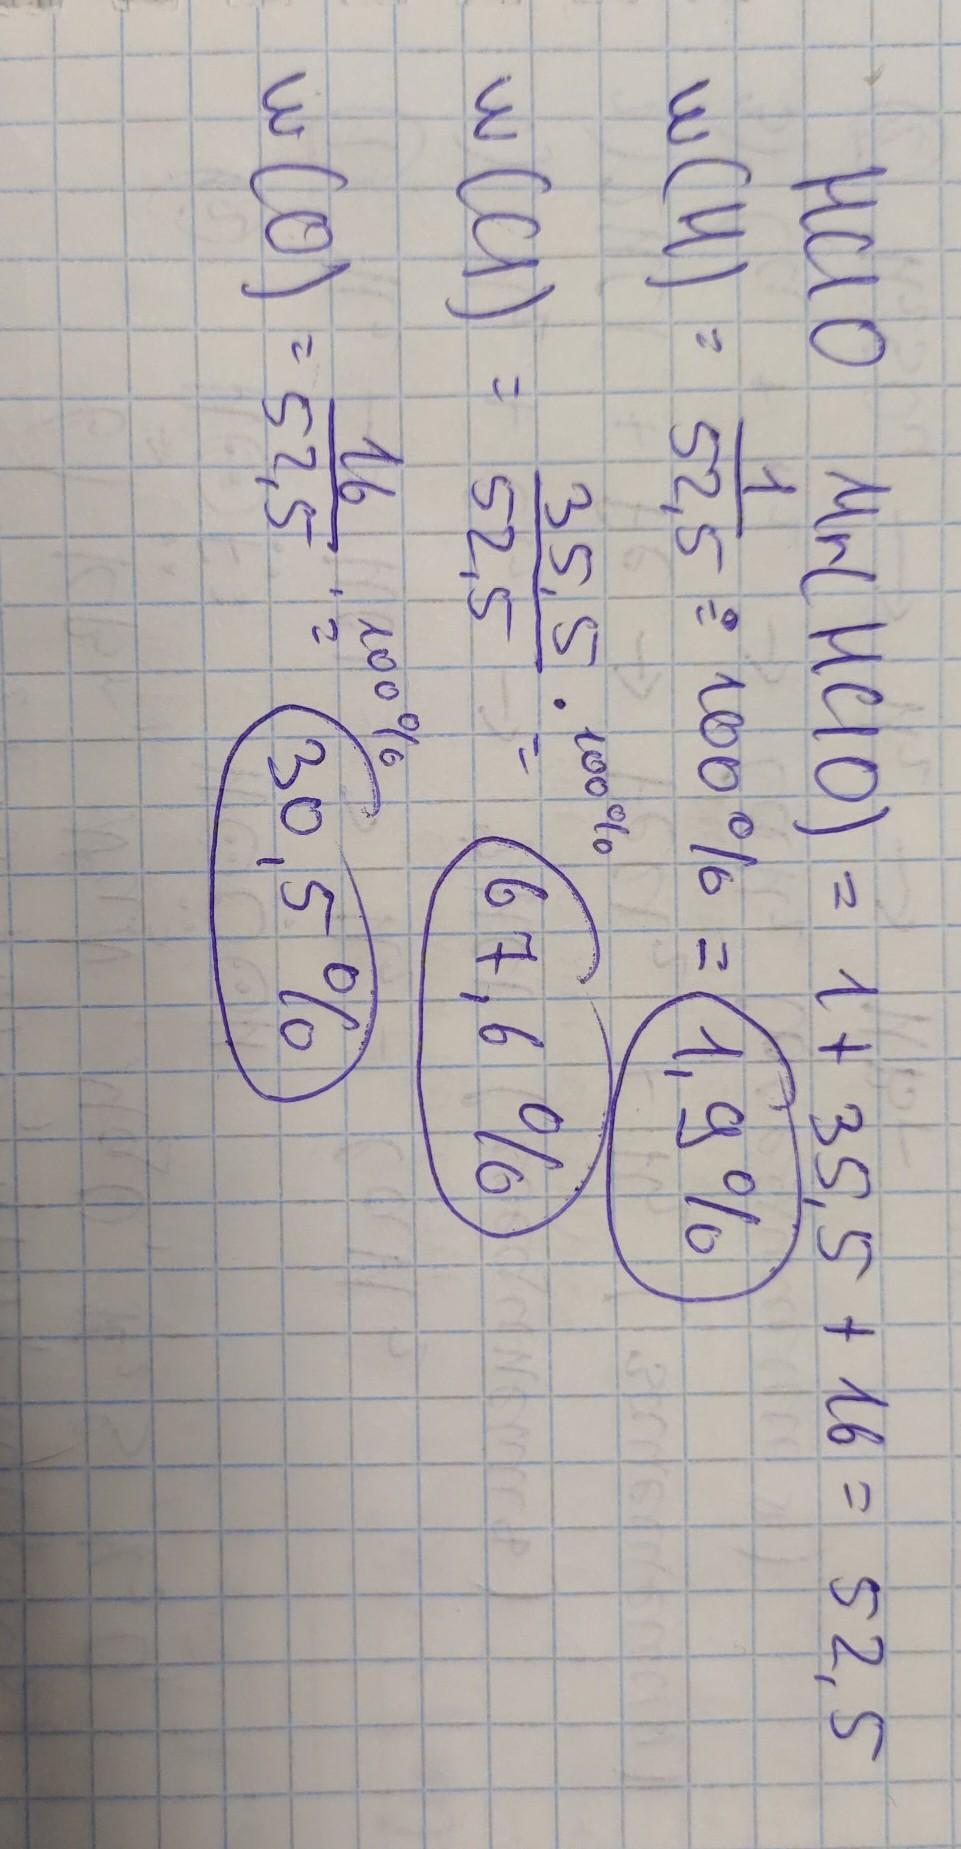 HClO Mr(HClO) = 1 + 35,5 + 16 = 52,5
w(H) = 1/52,5 · 100% = 1,9%
w(Cl) = 35,5/52,5 · 100% = 67,6%
w(O) = 16/52,5 · 100% = 30,5%